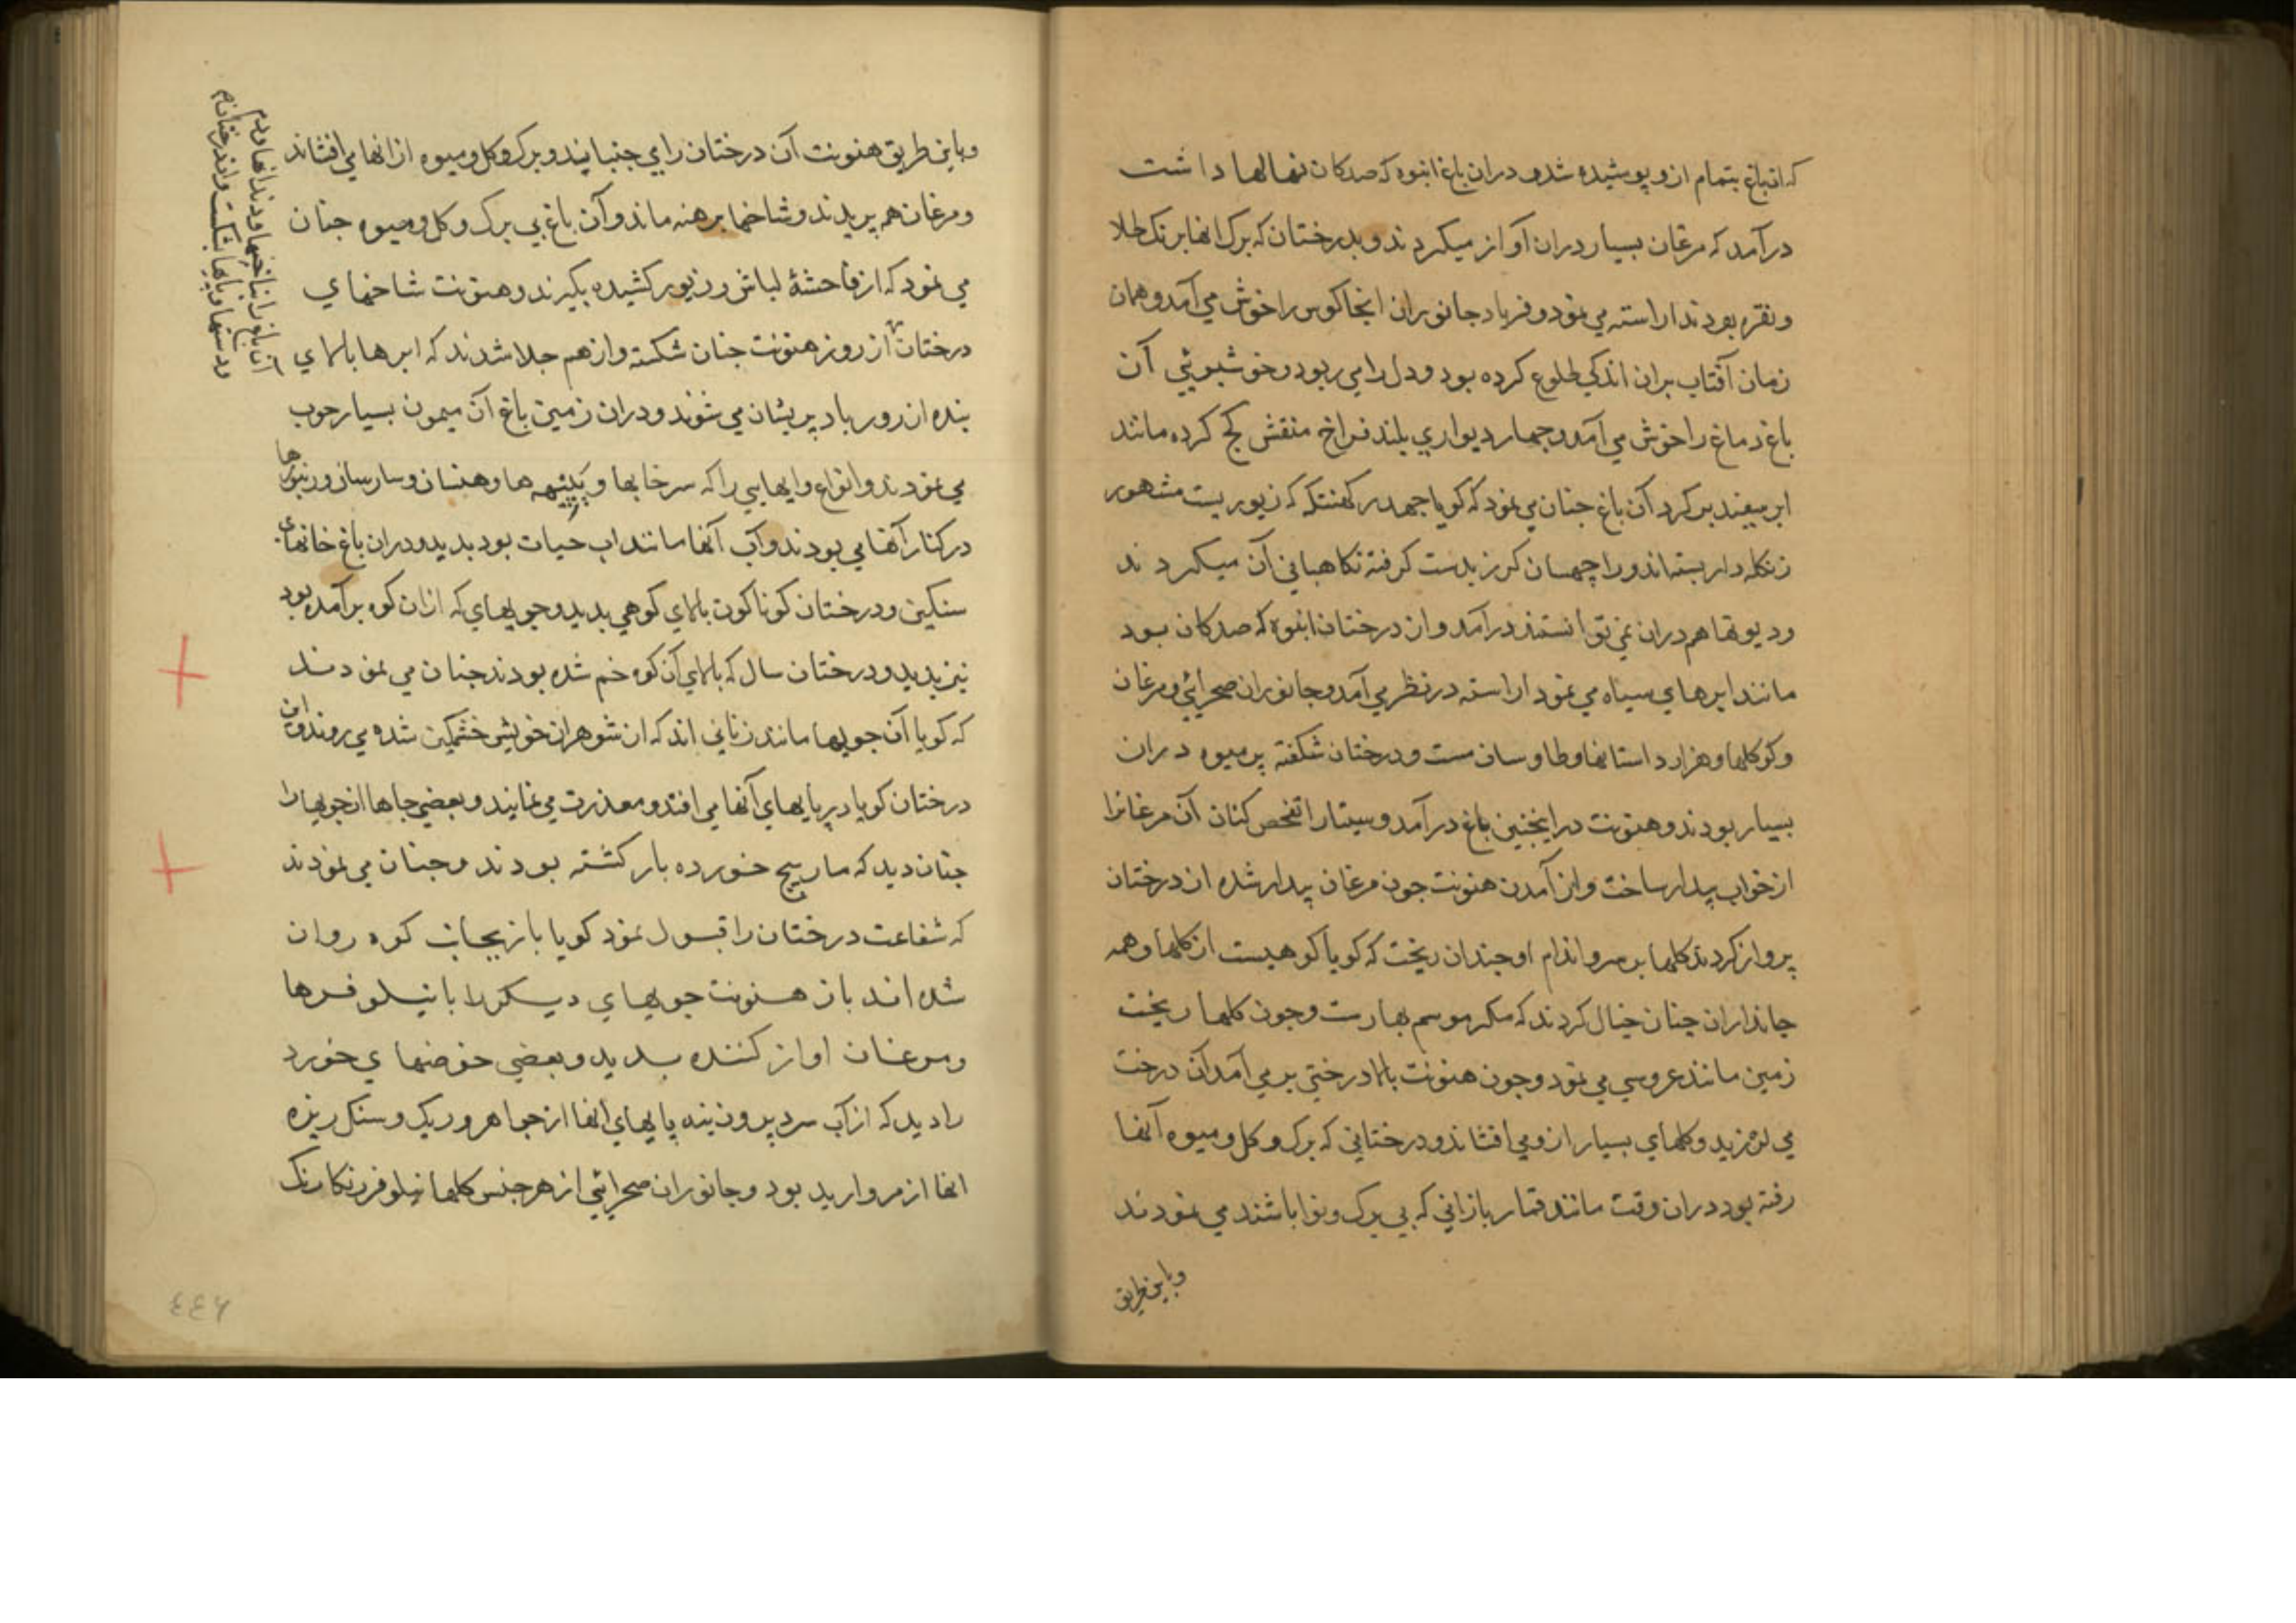 که آن باغ بتمام ازو پوشیده شده دران باغ انبوه که صدکان نهالها داشت
درآمد که مرغان بسیار دران آواز میکردند و بدرختان که برک انها برنک طلا
ونقره بودند اراسته می نمود و فریاد جانوران انجا کوس را خوش می آمد و همان
زمان آفتاب بران اندکی طلوع کرده بود و دل را می ربود و خوشبوئی آن
باغ دماغ را خوش می آمد و چهار دیواری بلند فراخ منقش کچ کرده مانند
ابر سفید بر کرد آن باغ جنان می نمود که کویا جمدر کهنتکه که زیوریست مشهور
زنکله دار بسته اند و را چهسان کرز بدست کرفته نکاهبانی آن میکردند
و دیوتها هم دران نمی توانستند درآمد و ان درختان انبوه که صدکان بود
مانند ابرهای سیاه می نمود اراسته در نظر می آمد و جانوران صحرائی و مرغان
وکوکلها و هزار داستانها و طاوسان مست و درختان شکفته پر میوه دران
بسیار بودند و هنونت در اینجنین باغ درآمد و سیتا را تفحص کنان آن مرغانرا
از خواب بیدار ساخت و از آمدن هنونت جون مرغان بیدار شده از درختان
پرواز کردند کلها بر سر و اندام او جندان ریخت که کویا کوهیست از کلها و همه
جانداران چنان خیال کردند که مکر موسم بهارست و جون کلها ریخت
زمین مانند عروسی می نمود و جون هنونت بالا درختی بر می آمد آن درخت
می لرزید و کلهای بسیار ازو می افشاند و درختانی که برک و کل و میوه آنها
رفته بود دران وقت مانند قمار بازانی که بی برک و نوا باشند می نمودند
وباین طریق
وباین طریق هنونت آن درختان را می جنبانید و برک و کل و میوه از انها می افشاند
و مرغان هم پریدند و شاخها برهنه ماند و آن باغ بی برک و کل و میوه جنان
می نمود که از فاحشهٔ لباس و زیور کشیده بکیرند و هنونت شاخهای
درختان از زور هنونت جنان شکسته و از هم جدا شدند که ابرها بالای
بنده از زور باد پریشان می شوند و دران زمین باغ آن میمون بسیار خوب
می نمودند و انواع وایهایی را که سرخابها و پپیهه ها و هنسان و سارسان و زنبورها
در کنار آنها می بودند و آب آنها مانند اب حیات بود بدید و دران باغ خانهای
سنکین و درختان کوناکون بالای کوهی بدید و جویهای که ازان کوه برآمده بود
نیز بدید و درختان سال که بالای آن کوه خم شده بودند جنان می نمودند
که کویا آن جویها مانند زنانی اند که از شوهران خویش خشمکین شده می روند و این
درختان کویا در پایهای آنها می افتد و معذرت می نمایند و بعضی جاها ان جویها را
جنان دید که مار پیچ خورده باز کشته بودند و جنان می نمودند
که شفاعت درختان را قبول نمود کویا باز بجانب کوه روان
شده اند باز هنونت جویهای دیکر را با نیلوفرها
و مرغان اواز کننده بدید و بعضی حوضهای خورد
را دید که از آب سرد پر و زینه پایهای انها از جواهر و ریک و سنک ریزه
انها از مروارید بود و جانوران صحرائی از هر جنس کلها نیلوفر رنکارنک
آن باغ را بناخنها و دندانها و دم
و دستها و پایها بشکست و ان درختان
۴۴۶